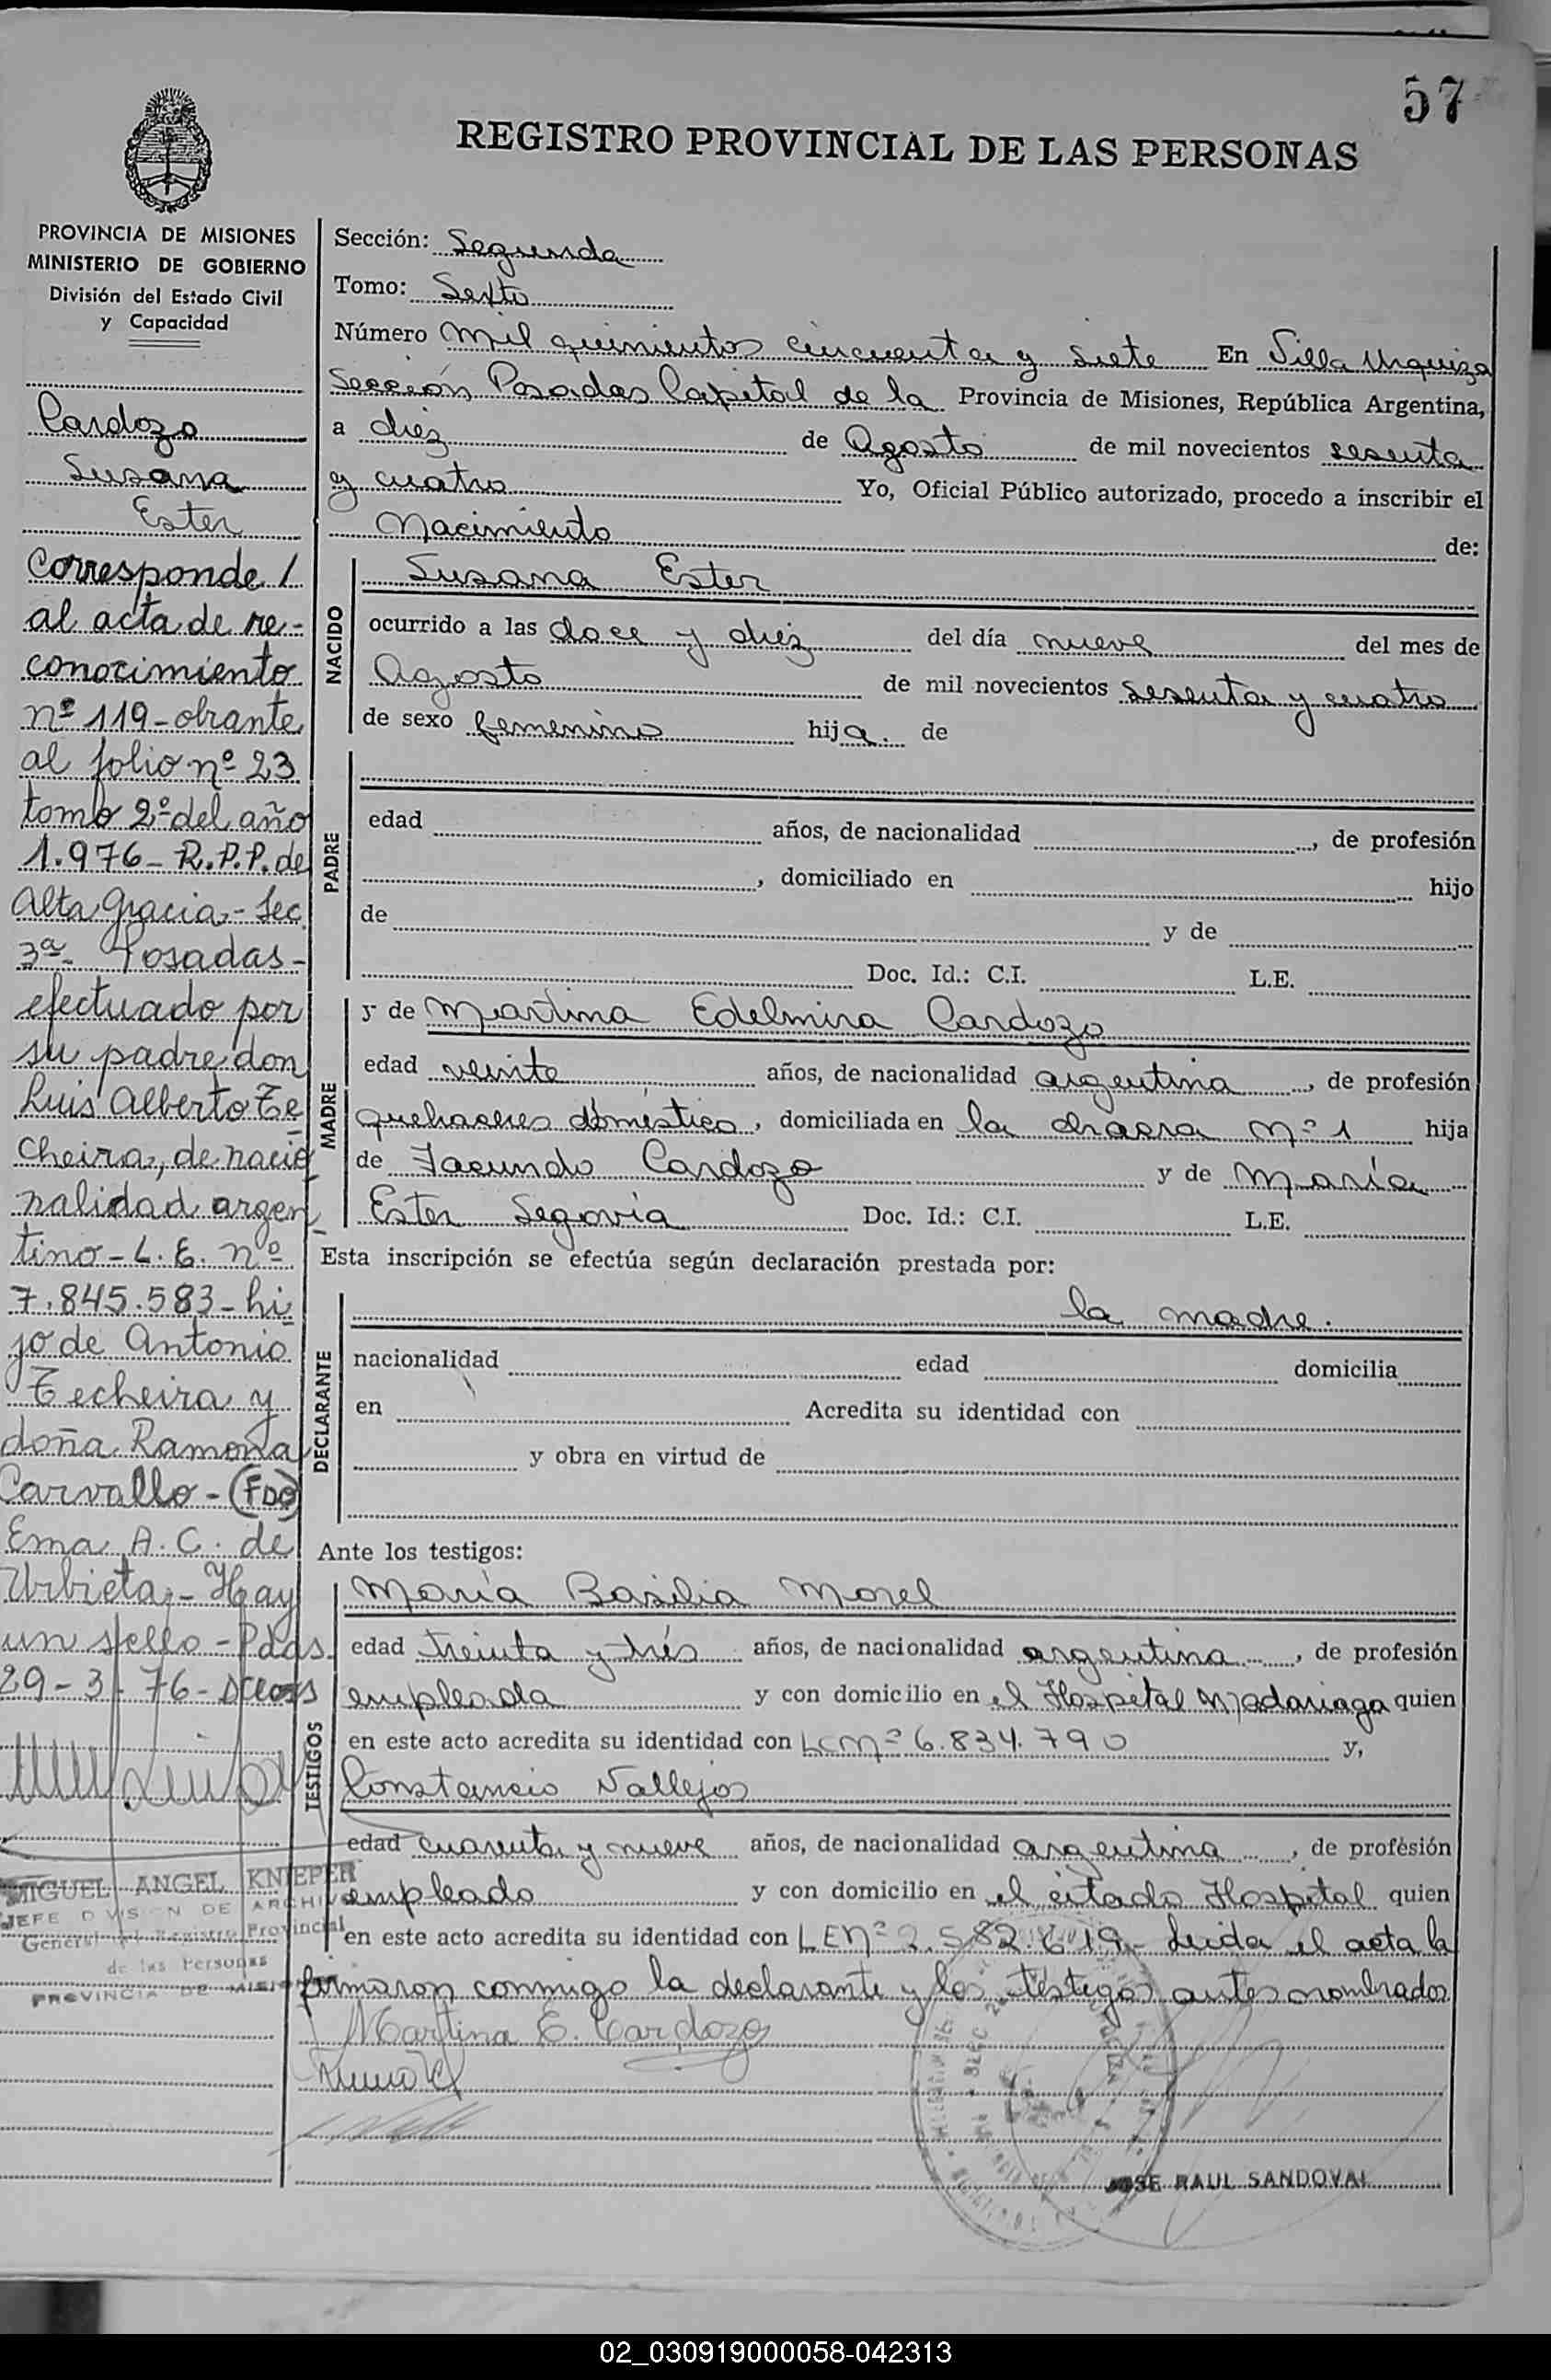 57
REGISTRO PROVINCIAL DE LAS PERSONAS
PROVINCIA DE MISIONES
MINISTERIO DE GOBIERNO
División del Estado Civil
y Capacidad
Cardozo
Susana
Ester
Corresponde /
al acta de re-
conocimiento
nº 119- obrante
al folio nº 23
tomo 2º del año
1.976- R.P.P. de
Alta Gracia - Sec
3ª- Posadas-
efectuado por
su padre don
Luis Alberto Te
cheira, de nacio
nalidad argen
tino - L.E. nº
7.845.583- hi
jo de Antonio
Techeira y
doña Ramona
Carvallo - (FDO)
Ema A.C. de
Urbieta - Hay
un sello - Pdas.
29-3-76-
MIGUEL ANGEL KNIEPER
JEFE DIVISION DE ARCHIVO
General del Registro Provincial
de las Personas
PROVINCIA DE MISIONES
Sección: Segunda
Tomo: Sexto
Número Mil quinientos cincuenta y siete En Villa Urquiza
Sección Posadas Capital de la Provincia de Misiones, República Argentina,
a diez de Agosto de mil novecientos sesenta
y cuatro Yo, Oficial Público autorizado, procedo a inscribir el
Nacimiento de:
NACIDO
Susana Ester
ocurrido a las doce y diez del día nueve del mes de
Agosto de mil novecientos sesenta y cuatro
de sexo femenino hija. de
PADRE
edad años, de nacionalidad , de profesión
, domiciliado en hijo
de y de
Doc. Id.: C.I. L.E.
MADRE
y de Martina Edelmira Cardozo
edad veinte años, de nacionalidad argentina , de profesión
quehaceres domésticos, domiciliada en la chacra Nº 1 hija
de Facundo Cardozo y de María
Ester Segovia Doc. Id.: C.I. L.E.
Esta inscripción se efectúa según declaración prestada por:
DECLARANTE
la madre.
nacionalidad edad domicilia
en Acredita su identidad con
y obra en virtud de
Ante los testigos:
TESTIGOS
María Basilia Morel
edad treinta y trés años, de nacionalidad argentina , de profesión
empleada y con domicilio en el Hospital Madariaga quien
en este acto acredita su identidad con LCNº 6.834.790 y,
Constancio Vallejos
edad cuarenta y nueve años, de nacionalidad argentina , de profesión
empleado y con domicilio en el citado Hospital quien
en este acto acredita su identidad con LENº 2.582.619- Leida el acta la
firmaron conmigo la declarante y los testigos antes nombrados
Martina E. Cardozo
JOSE RAUL SANDOVAL
02_030919000058-042313